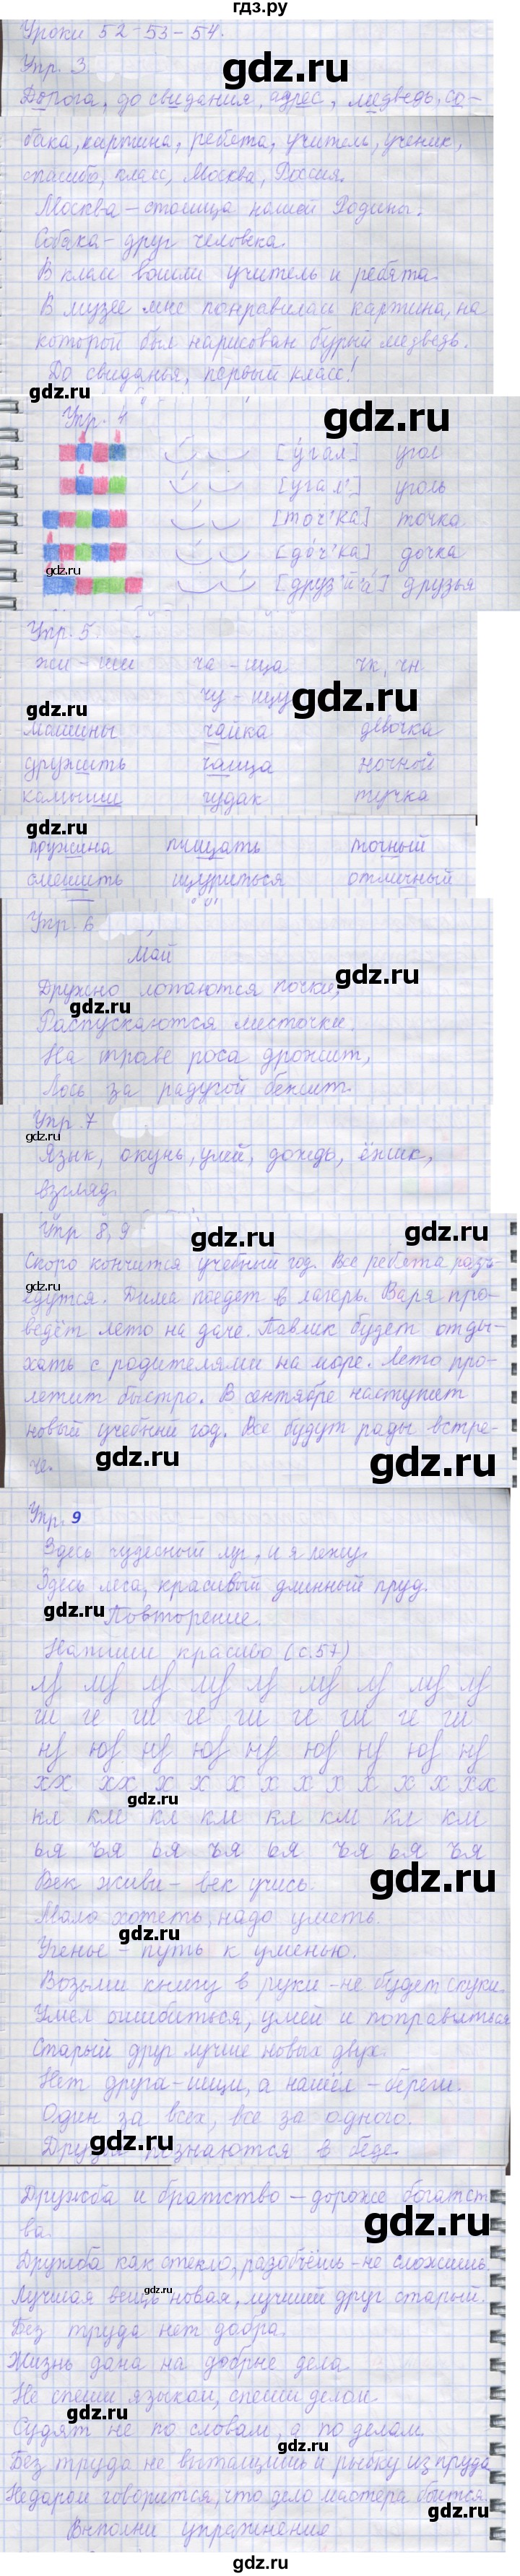 гдз.ру
Уроки 52-53-54.
Упр. 3
Дорога, до свидания, адрес, медведь, со-
бака, картина, ребята, учитель, ученик,
спасибо, класс, Москва, Россия.
Москва – столица нашей Родины.
Собака – друг человека.
В класс вошли учитель и ребята.
В музее мне понравилась картина, на
которой был нарисован бурый медведь.
До свиданья, первый класс!
gdz.ru
Упр. 4
gdz.ru
[угал] угол
[угал'] уголь
[точ'ка] точка
[доч'ка] дочка
gdz.ru
[друз'й'а] друзья
Упр. 5.
жи - ши ча - ща чк, чн
чу - щу
gdz.ru
gdz.ru
машины чайка девочка
дружить чаща ночной
камыши чудак тучка
gdz.ru
пружина пищать точный
смешить щуриться отличный
Упр. 6
Май
gdz.ru
Дружно лопаются почки,
gdz.ru
Распускаются листочки.
На траве роса дрожит,
Лось за радугой бежит.
Упр. 7
gdz.ru
Язык, окунь, улей, дождь, ёжик,
взгляд.
Упр 8, 9
gdz.ru
gdz.ru
Скоро кончится учебный год. Все ребята разъ-
gdz.ru
едутся. Дима поедет в лагерь. Варя про-
ведёт лето на даче. Павлик будет отды-
хать с родителями на море. Лето про-
летит быстро. В сентябре наступит
новый учебный год. Все будут рады встре-
че.
gdz.ru
gdz.ru
Упр. 9
Здесь чудесный луг, и я лежу.
Здесь леса, красивый длинный пруд.
gdz.ru
Повторение.
Напиши красиво (с.57)
gdz.ru
кл км кл км кл км кл км
ья ъя ья ъя ья ъя ья ъя
gdz.ru
Век живи – век учись.
Мало хотеть, надо уметь.
gdz.ru
Ученье – путь к уменью.
Возьми книгу в руки – не будет скуки.
Умел ошибиться, умей и поправиться
Старый друг лучше новых двух.
Нет друга – ищи, а нашёл – береги.
Один за всех, все за одного.
gdz.ru
Друзья познаются в беде.
Дружба и братство – дороже богатст
ва.
gdz.ru
Дружба как стекло, разобьёшь – не сложишь.
gdz.ru
Лучшая вещь новая, лучший друг старый.
Без труда нет добра.
Жизнь дана на добрые дела
Не спеши языком, спеши делом.
Судят не по словам, а по делам.
gdz.ru
Без труда не вытащишь и рыбку из пруда
Недаром говорится, что дело мастера боится
gdz.ru
Выполни упражнение
gdz.ru